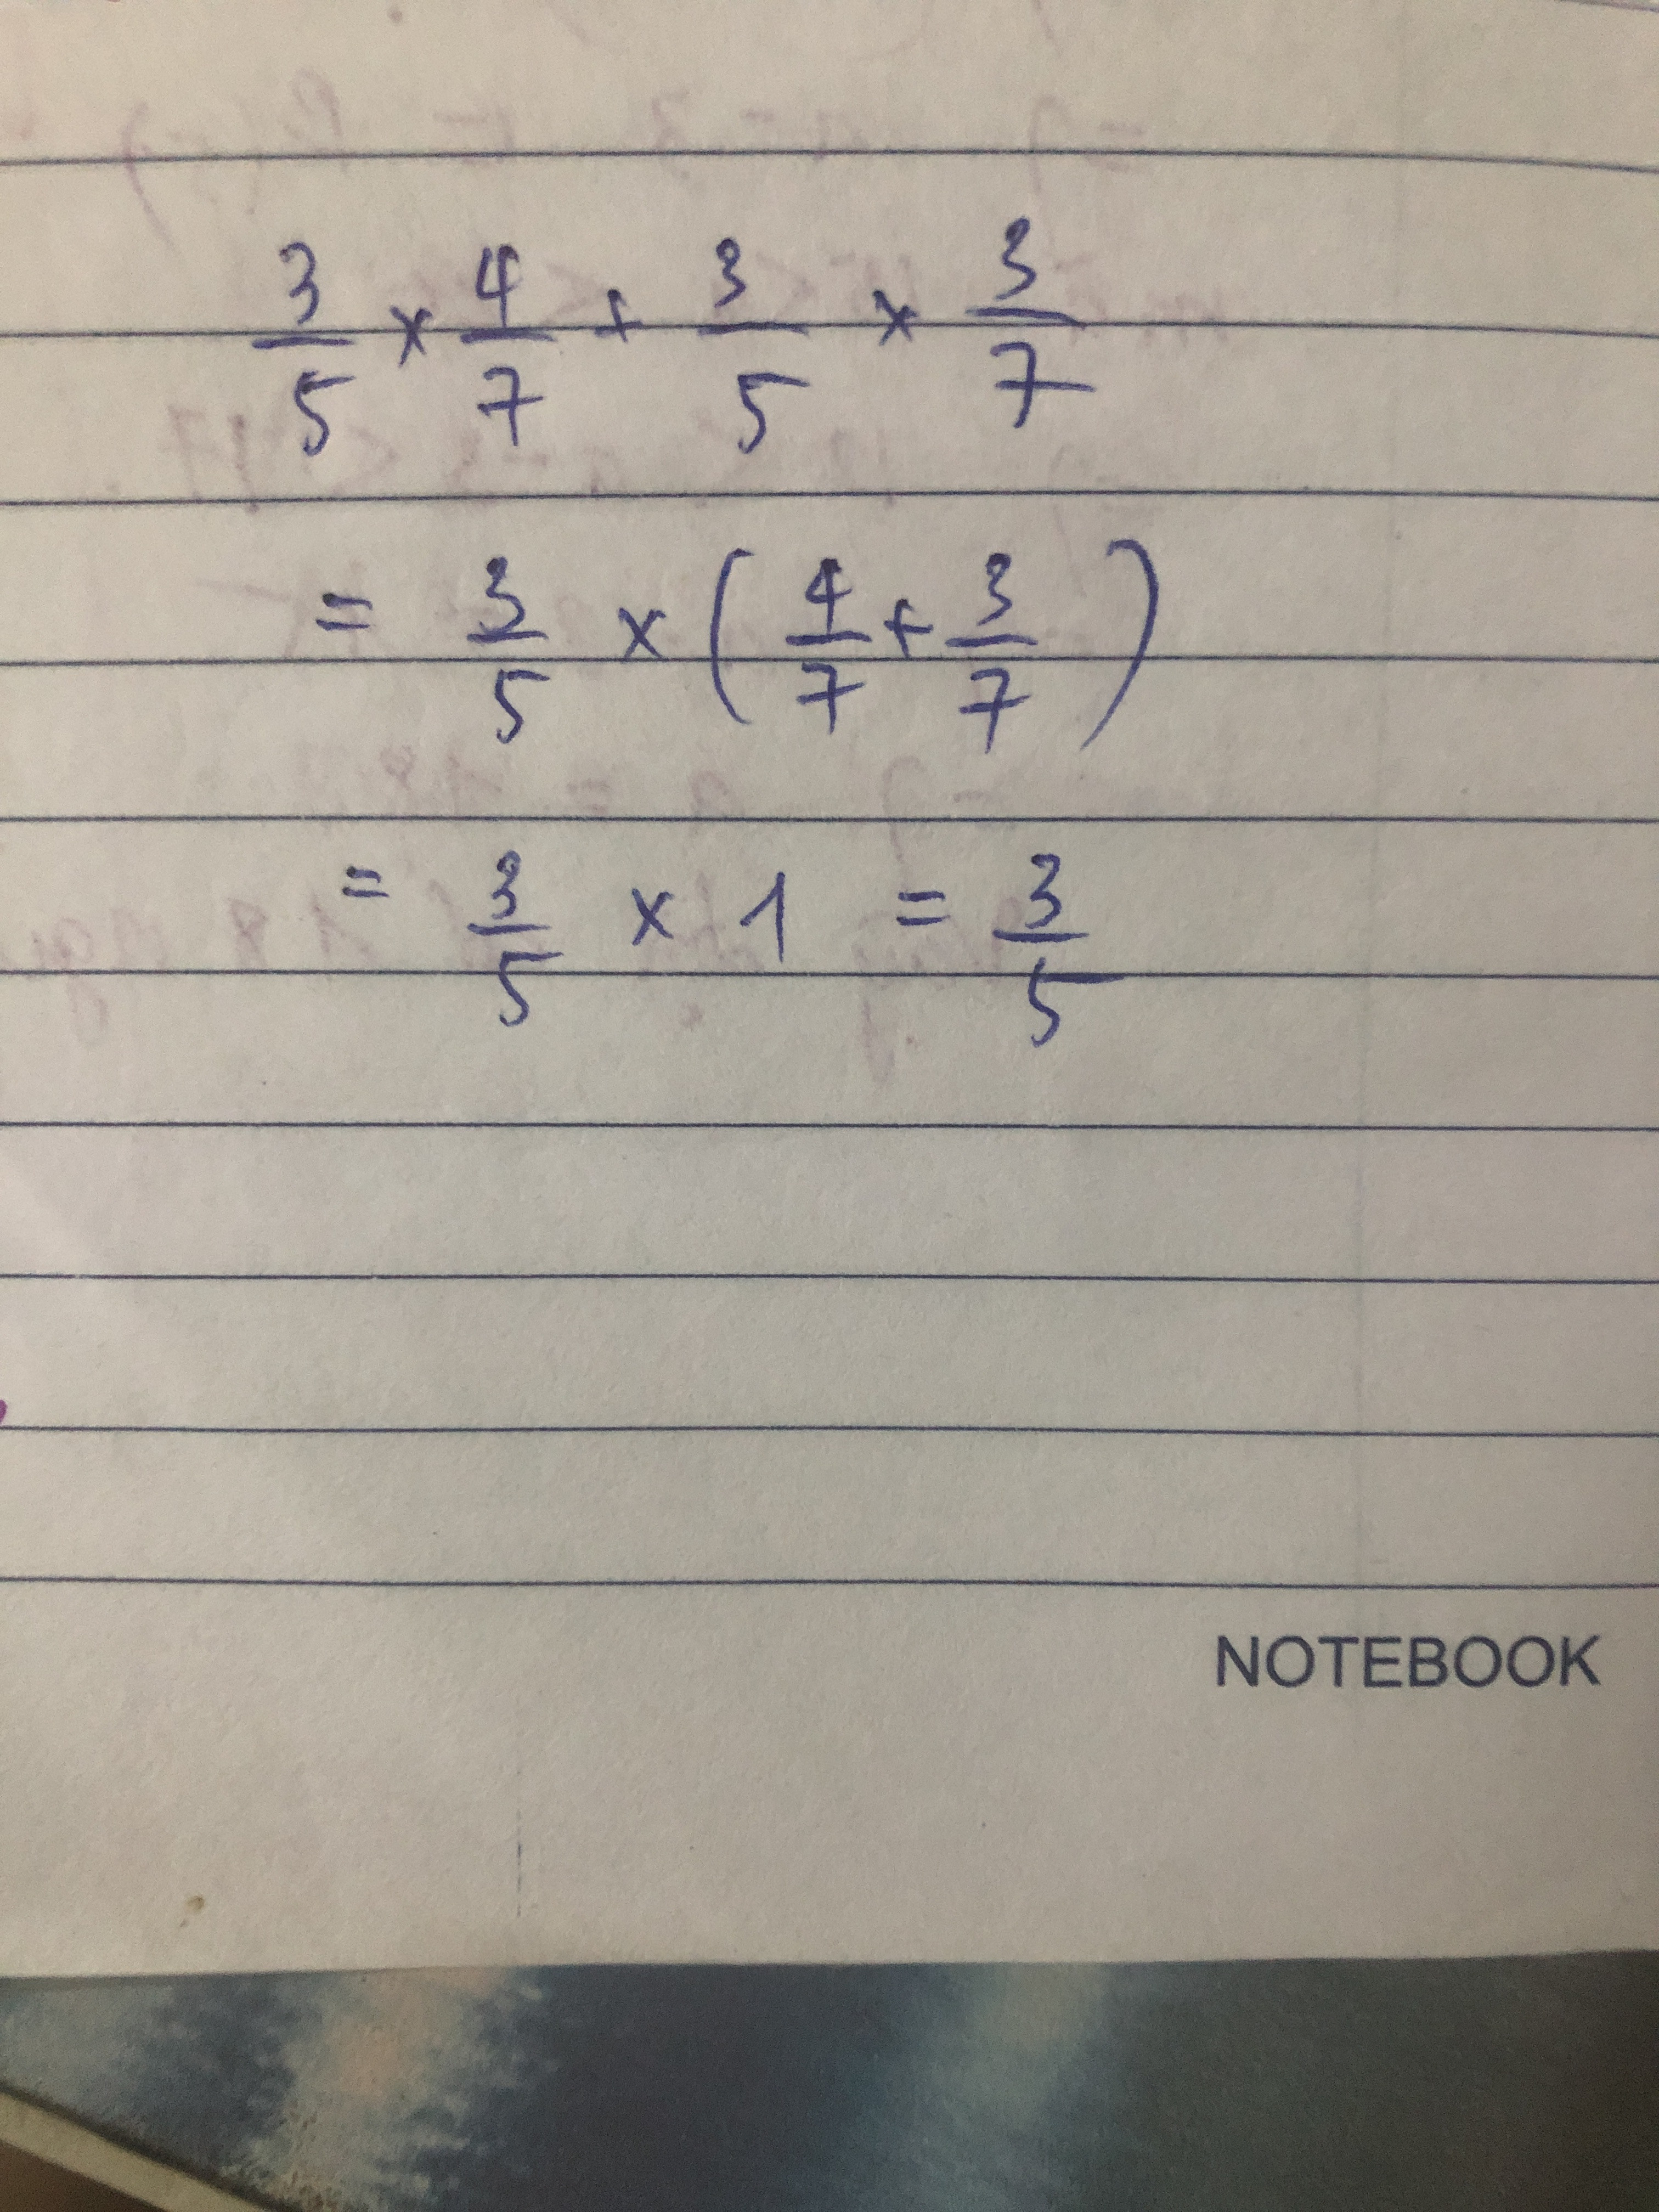 3/5 × 4/7 + 3/5 × 3/7
= 3/5 × (4/7 + 3/7)
= 3/5 × 1 = 3/5
NOTEBOOK